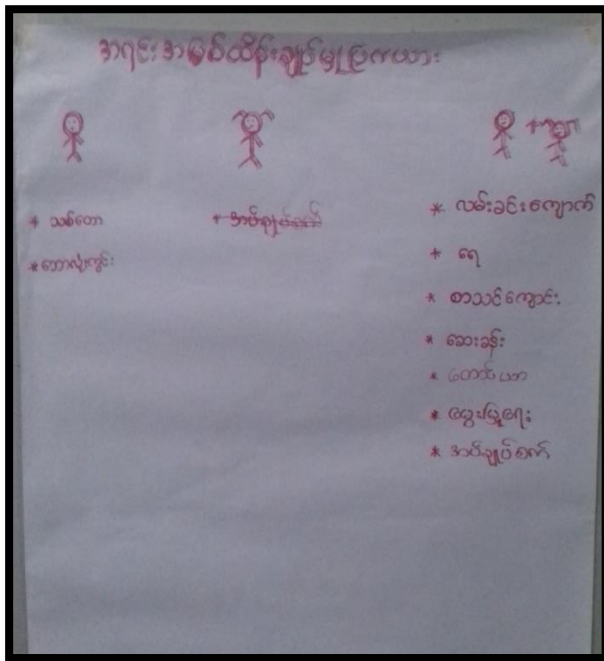 အရင်းအမြစ်ထိန်းချုပ်မှုပြဇယား
+ သစ်တော
* ဘောလုံးကွင်း
+ အပ်ချုပ်စက်
* လမ်းခင်းကျောက်
+ ရေ
* စာသင်ကျောင်း
* ဆေးခန်း
* တောင်ယာ
* မွေးမြူရေး
* အပ်ချုပ်စက်